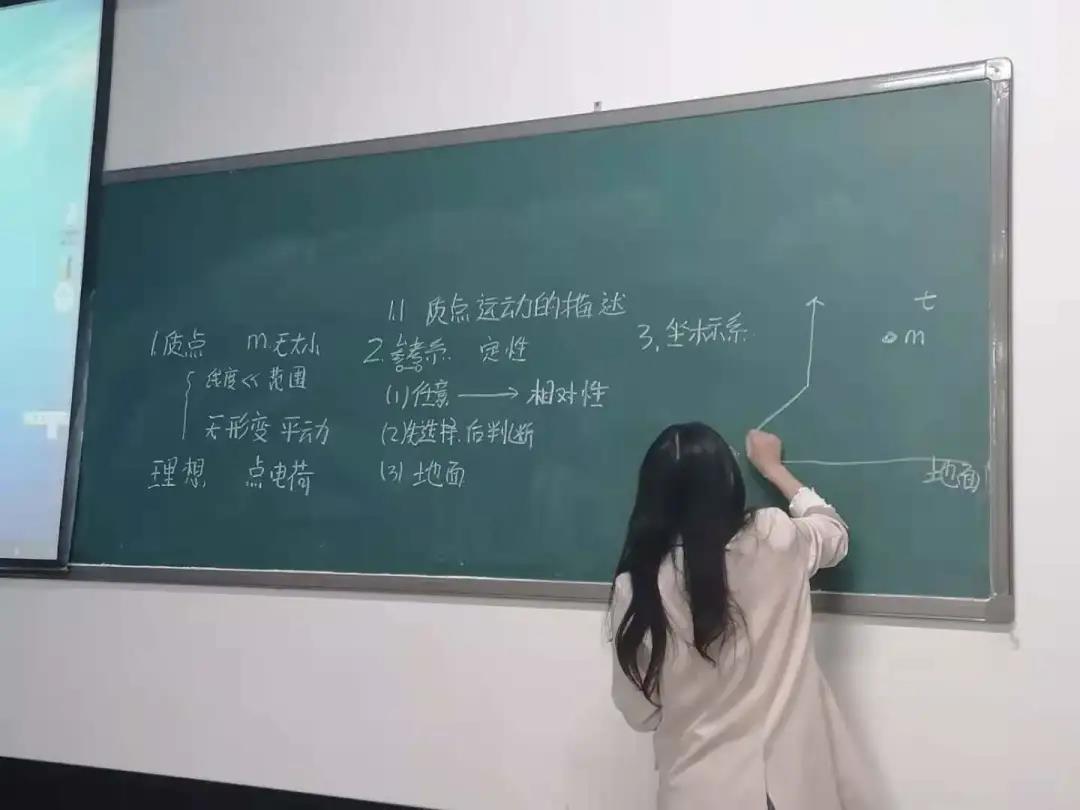 1.1 质点运动的描述
1.质点 m.无大小
线度<< 范围
无形变 平动
理想 点电荷
2.参考系 定性
(1)任意 → 相对性
(2)先选择.后判断
(3)地面
3.坐标系
t
m
地面